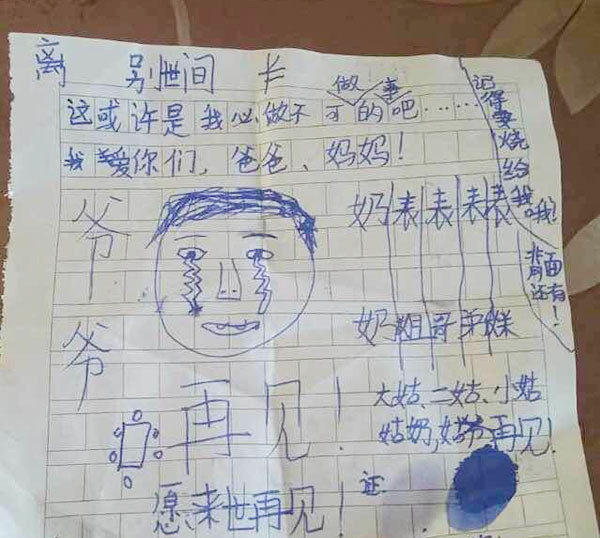 离 别世间 卡
做 事
这或许是我必做不可的吧……
我爱你们，爸爸、妈妈！
记得要烧给我哦！
背面还有！
爷爷
奶奶
表姐
表哥
表弟
表妹
大姑、二姑、小姑
姑奶，姑爷再见！
再见！
愿来世再见！
证